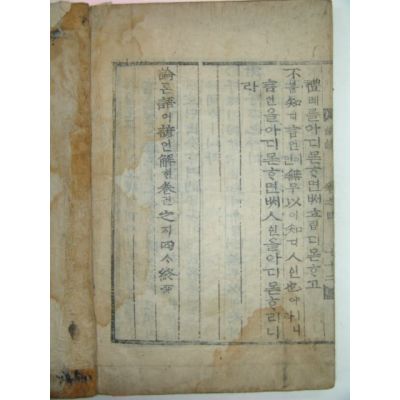 禮례를아디몯ᄒᆞ면ᄡᅥ立립디몯ᄒᆞ고
不블知디言언이면無무以이知디人인也야ㅣ니라
言언을아디몯ᄒᆞ면ᄡᅥ人인을아디몯ᄒᆞ리니
라
論론語어諺언解ᄒᆡ卷권之지四ᄉᆞ終죵